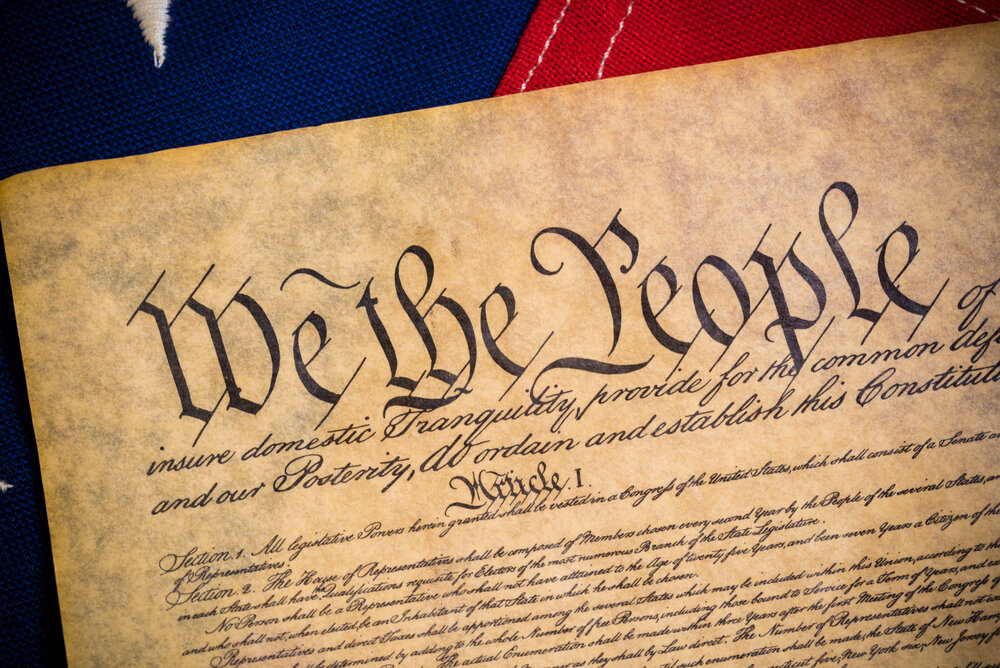 We the People of
insure domestic Tranquility, provide for the common
and our Posterity, do ordain and establish this
Article. I.
Section. 1. All legislative Powers herein granted shall be vested in a Congress of the United States, which shall consist of a Senate
of Representatives.
Section. 2. The House of Representatives shall be composed of Members chosen every second Year by the People of the several States,
in each State shall have the Qualifications requisite for Electors of the most numerous Branch of the State Legislature.
No Person shall be a Representative who shall not have attained to the Age of twenty five Years, and been seven Years a Citizen of the
and who shall not, when elected, be an Inhabitant of that State in which he shall be chosen.
Representatives and direct Taxes shall be apportioned among the several States which may be included within this Union, according to
determined by adding to the whole Number of free Persons, including those bound to Service for a Term of Years, and
The actual Enumeration shall be made within three Years after the first Meeting of the Congress
as they shall by Law direct. The Number of Representatives shall not
such enumeration shall be made, the State of New
five, New York six, New Jersey